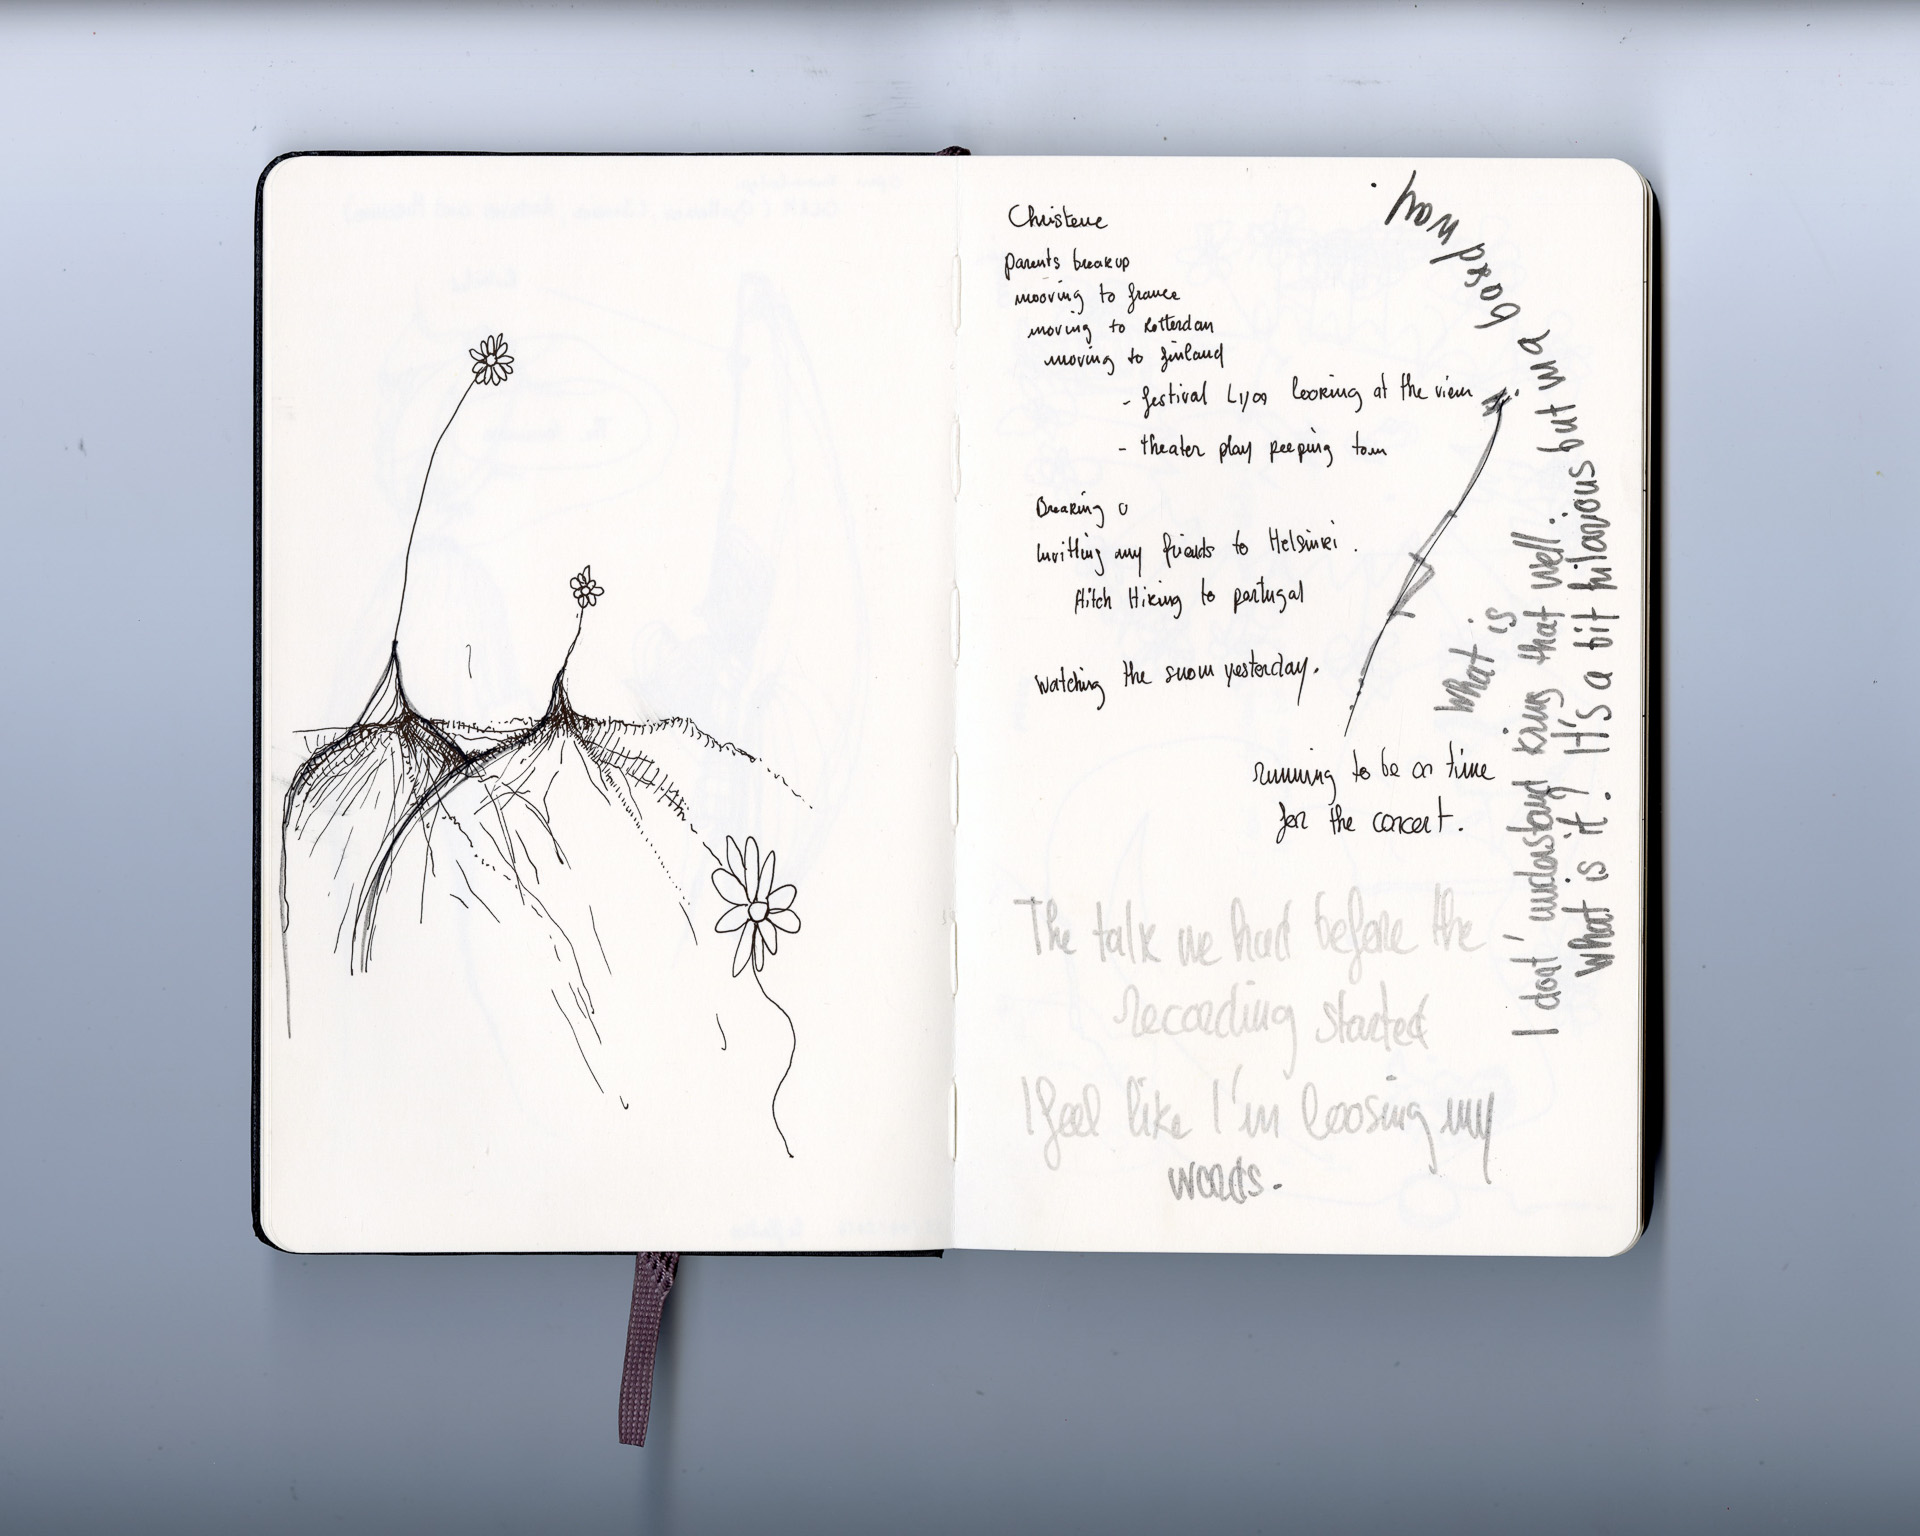 Christene
parents breakup
mooving to france
moving to Rotterdam
moving to finland
- festival looking at the view
- theater play peeping tom
Breaking
Invitling my friends to Helsinki.
Hitch Hiking to portugal
Watching the snow yesterday.
running to be on time
for the concert.
The talk we had before the
recording started
I feel like I'm loosing my
words.
What is
I dont' understand that well.
What is it? It's a bit hilarious but in a bored way.